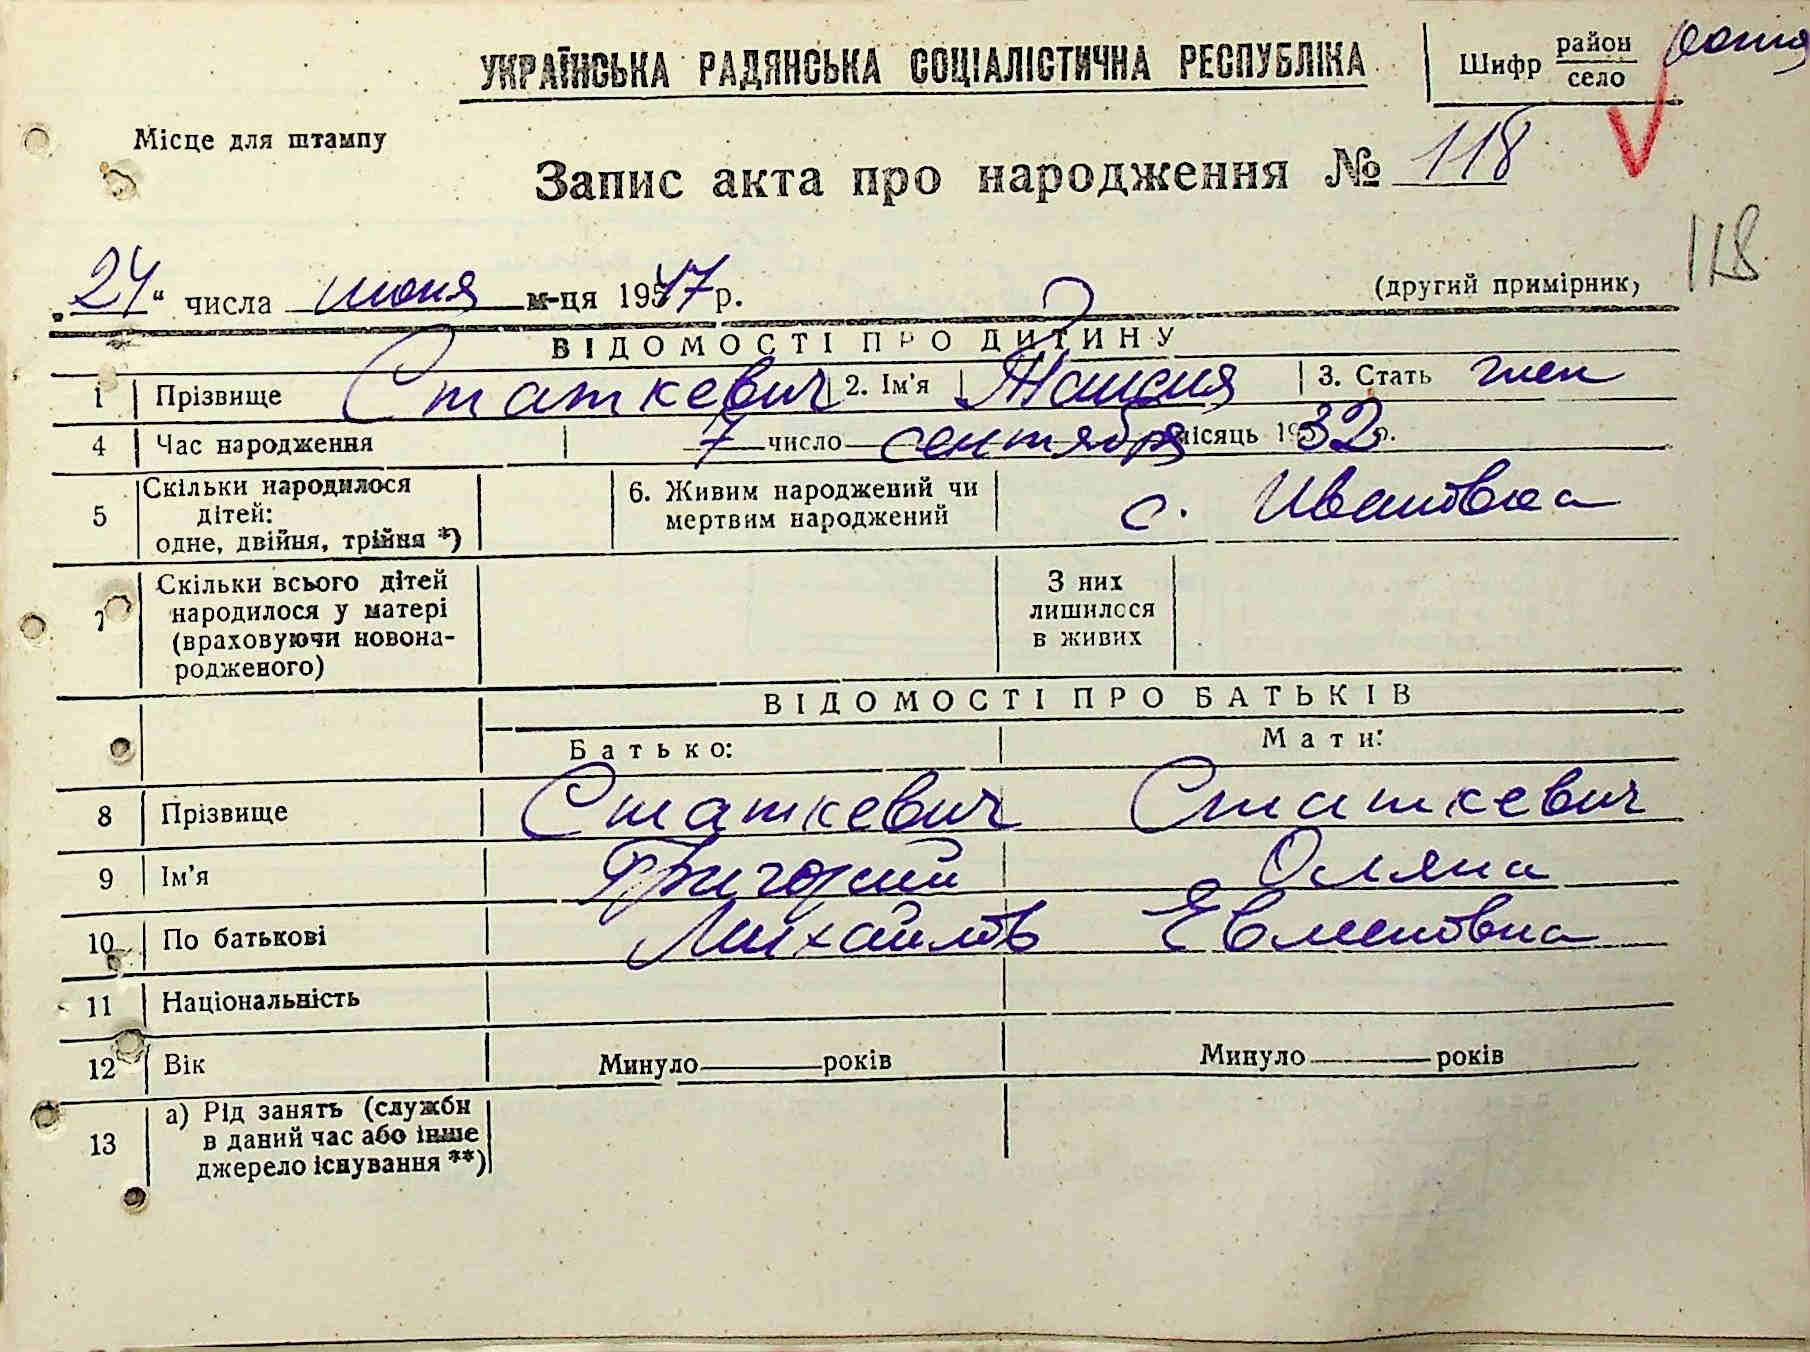 УКРАЇНСЬКА РАДЯНСЬКА СОЦІАЛІСТИЧНА РЕСПУБЛІКА
Шифр район село
Місце для штампу
Запис акта про народження № 118
118
„24“ числа июня м-ця 1947 р.
(другий примірник)
ВІДОМОСТІ ПРО ДИТИНУ
1 Прізвище Статкевич 2. Ім'я Таисия 3. Стать жен
4 Час народження 7 число сентября місяць 1932 р.
5 Скільки народилося дітей: одне, двійня, трійня *) 6. Живим народжений чи мертвим народжений с. Ивановка
7 Скільки всього дітей народилося у матері (враховуючи новонародженого) З них лишилося в живих
ВІДОМОСТІ ПРО БАТЬКІВ
Батько: Мати:
8 Прізвище Статкевич Статкевич
9 Ім'я Григорий Оляна
10 По батькові Михайлов Евменовна
11 Національність
12 Вік Минуло років Минуло років
13 а) Рід занять (служби в даний час або інше джерело існування **)